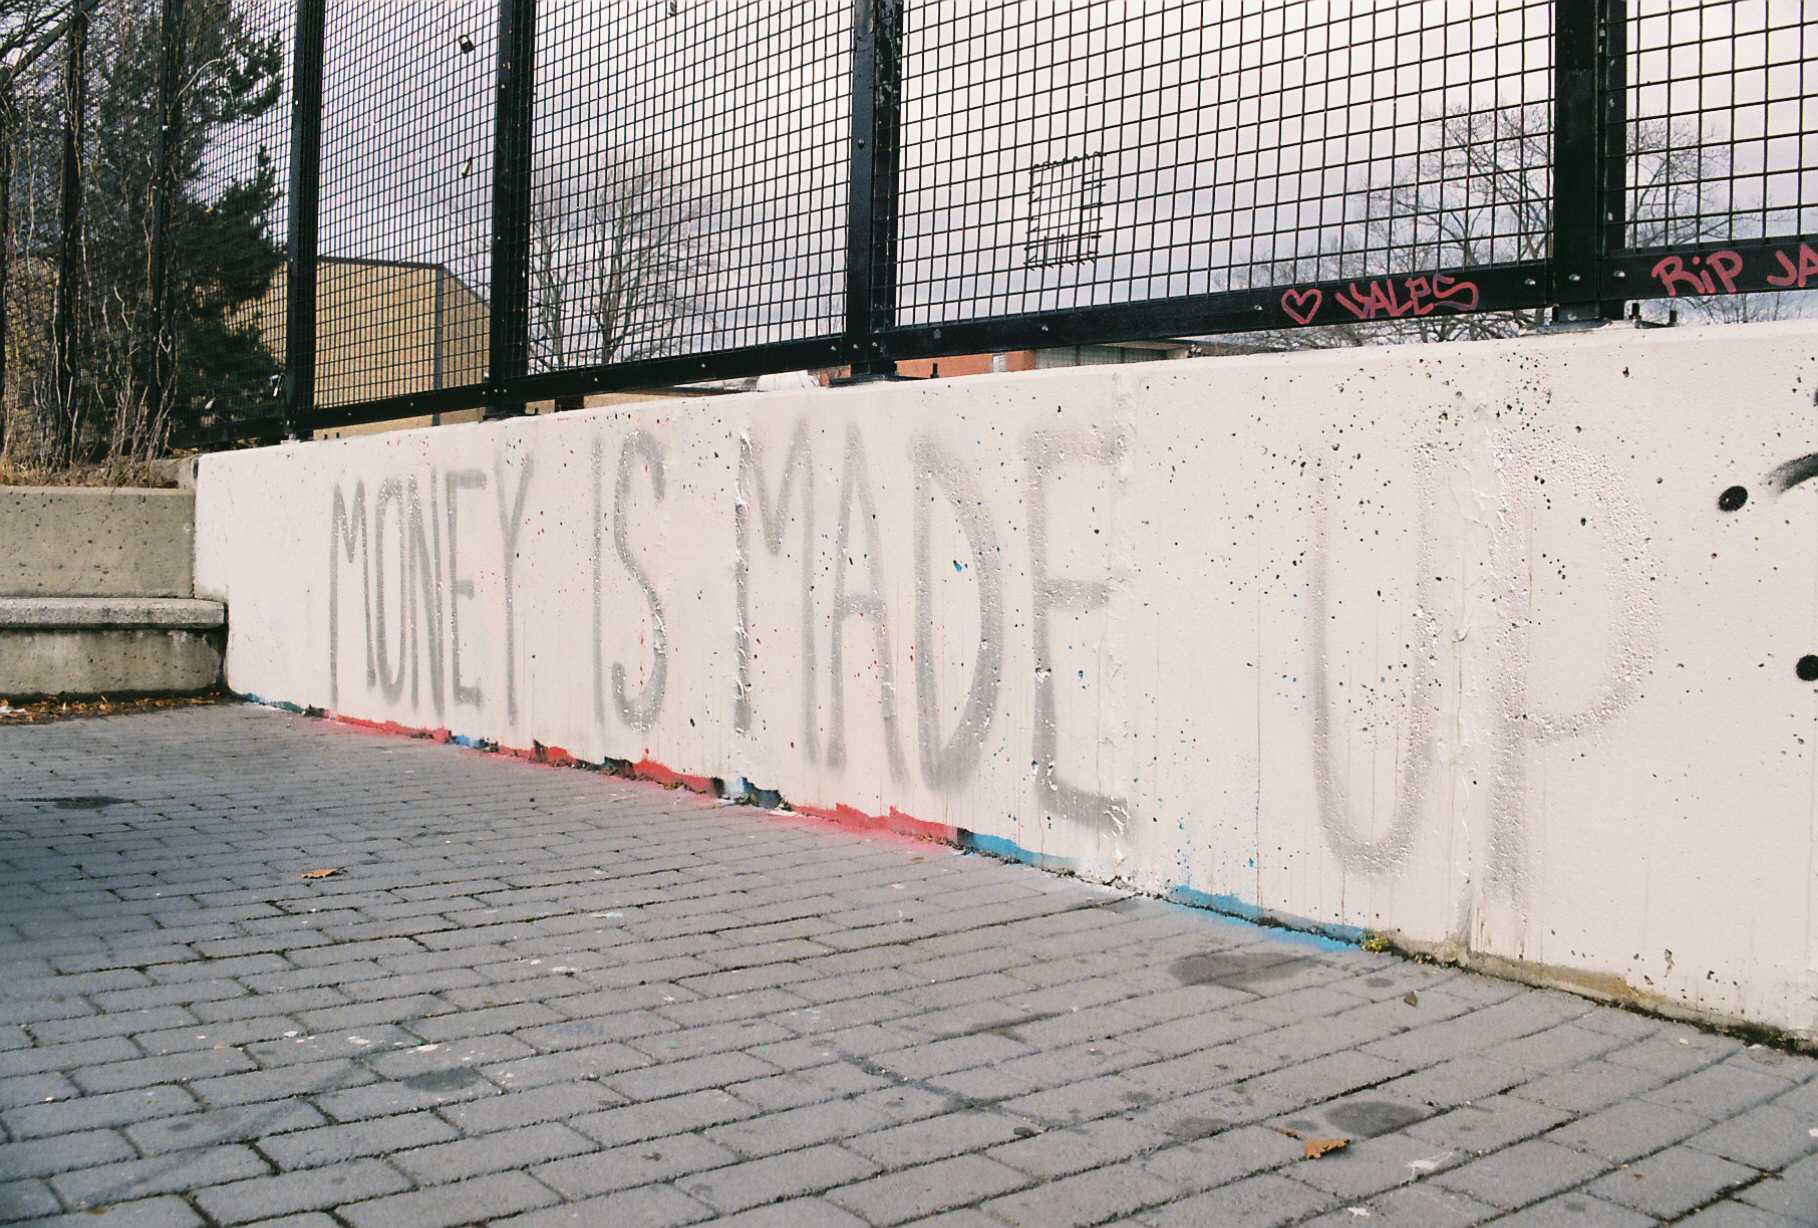 ♡ VALES
RiP JA
MONEY IS MADE UP